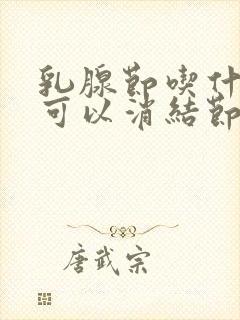 乳腺節喫什
可以消結節
唐武宗